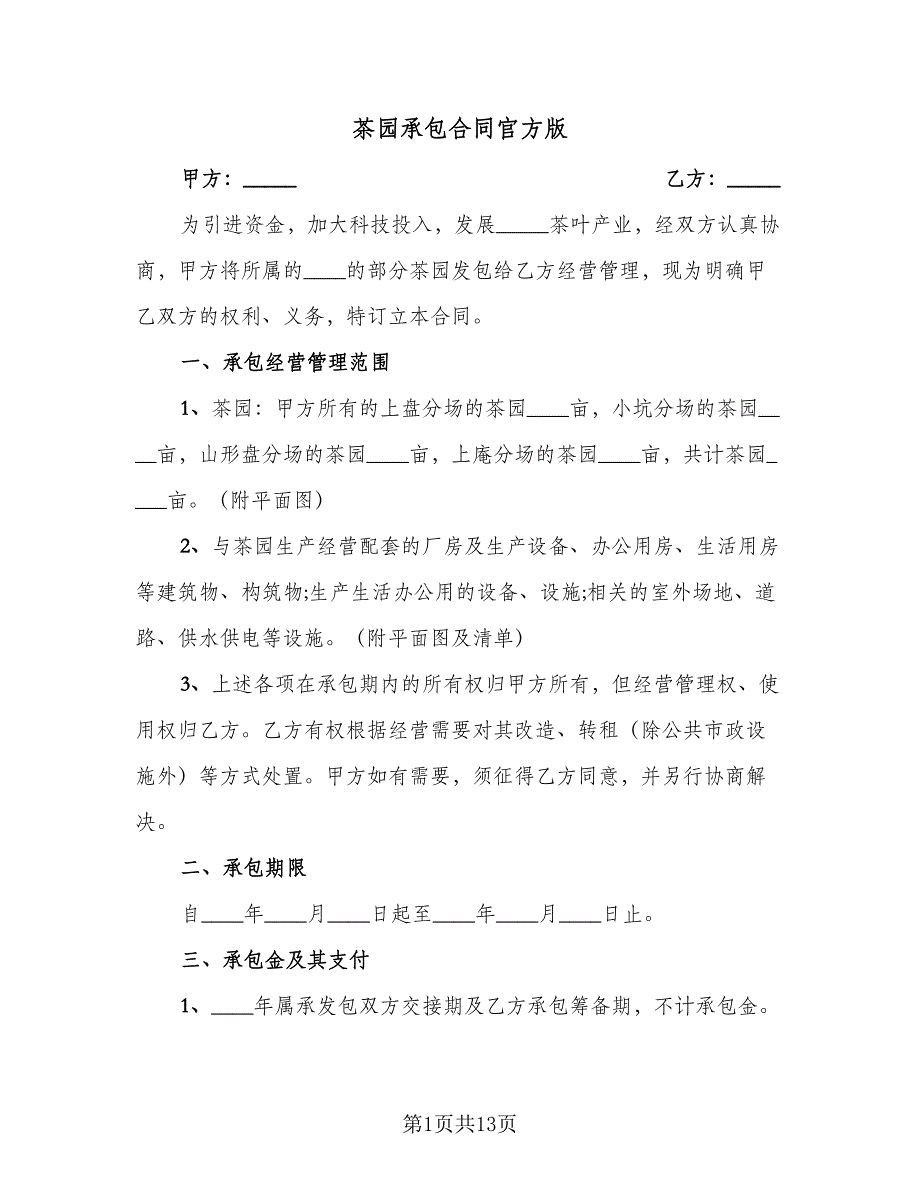 茶园承包合同官方版
甲方：_____ 乙方：_____
为引进资金，加大科技投入，发展_____茶叶产业，经双方认真协
商，甲方将所属的____的部分茶园发包给乙方经营管理，现为明确甲
乙双方的权利、义务，特订立本合同。
一、承包经营管理范围
1、茶园：甲方所有的上盘分场的茶园____亩，小坑分场的茶园__
__亩，山形盘分场的茶园____亩，上庵分场的茶园____亩，共计茶园_
___亩。（附平面图）
2、与茶园生产经营配套的厂房及生产设备、办公用房、生活用房
等建筑物、构筑物;生产生活办公用的设备、设施;相关的室外场地、道
路、供水供电等设施。（附平面图及清单）
3、上述各项在承包期内的所有权归甲方所有，但经营管理权、使
用权归乙方。乙方有权根据经营需要对其改造、转租（除公共市政设
施外）等方式处置。甲方如有需要，须征得乙方同意，并另行协商解
决。
二、承包期限
自____年____月____日起至____年____月____日止。
三、承包金及其支付
1、____年属承发包双方交接期及乙方承包筹备期，不计承包金。
第1页共13页